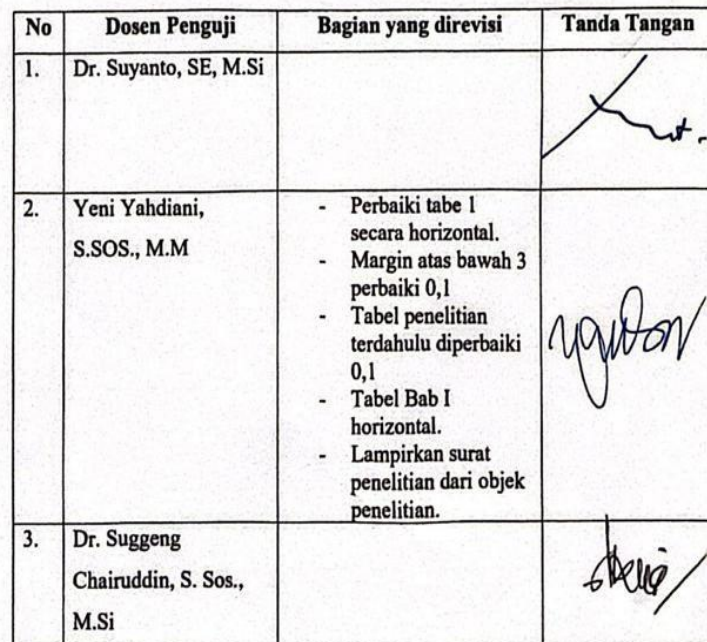 No Dosen Penguji Bagian yang direvisi Tanda Tangan
1. Dr. Suyanto, SE, M.Si
2. Yeni Yahdiani,
S.SOS., M.M
- Perbaiki tabe 1
secara horizontal.
- Margin atas bawah 3
perbaiki 0,1
- Tabel penelitian
terdahulu diperbaiki
0,1
- Tabel Bab I
horizontal.
- Lampirkan surat
penelitian dari objek
penelitian.
3. Dr. Suggeng
Chairuddin, S. Sos.,
M.Si